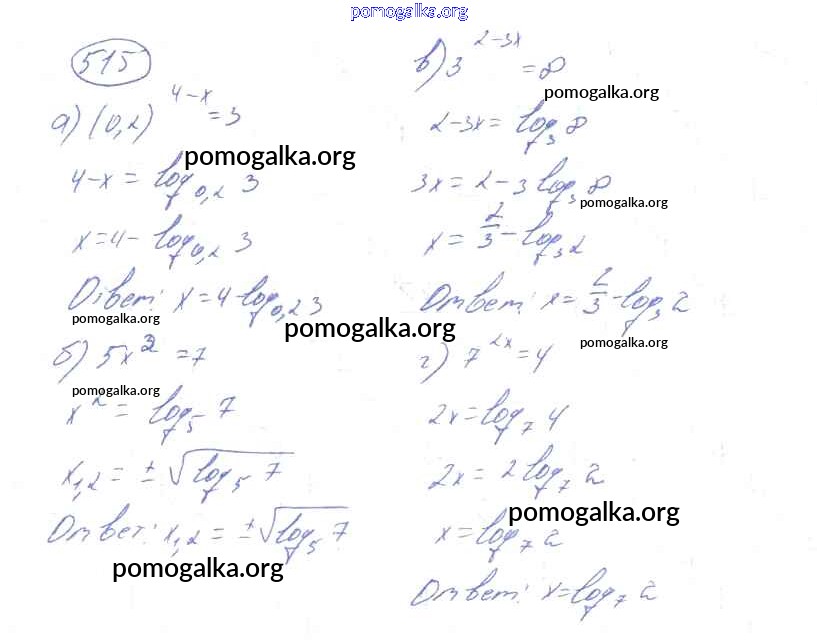 pomogalka.org
515
а) (0,2)^{4-x} = 3
pomogalka.org
4-x = log_{0,2} 3
x = 4 - log_{0,2} 3
Ответ: x = 4 - log_{0,2} 3
pomogalka.org
pomogalka.org
б) 5x^2 = 7
pomogalka.org
x^2 = log_5 7
x_{1,2} = ± √(log_5 7)
Ответ: x_{1,2} = ± √(log_5 7)
pomogalka.org
в) 3^{2-3x} = 8
pomogalka.org
2-3x = log_3 8
3x = 2 - 3 log_3 8
pomogalka.org
x = 2/3 - log_3 2
Ответ: x = 2/3 - log_3 2
pomogalka.org
г) 7^{2x} = 4
2x = log_7 4
2x = 2 log_7 2
pomogalka.org
x = log_7 2
Ответ: x = log_7 2